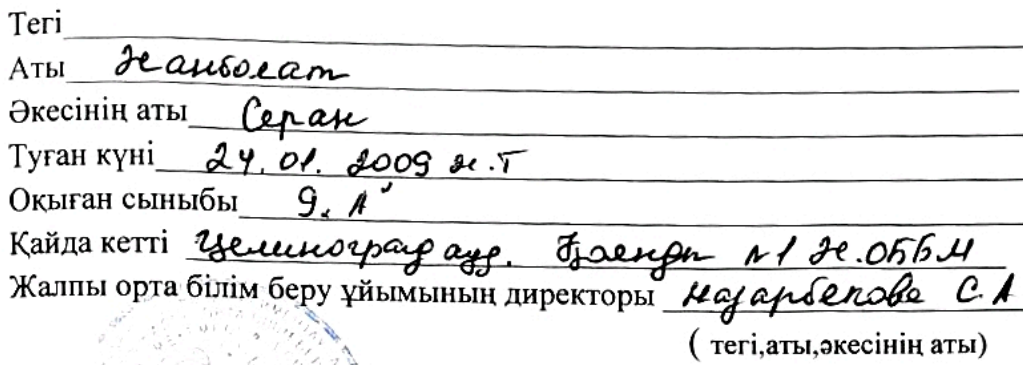 Тегі
Аты Жанболат
Әкесінің аты Серан
Туған күні 24.01.2009 ж.т
Оқыған сыныбы 9 "А"
Қайда кетті Целиноград ауд. №1 Ж.ОББМ
Жалпы орта білім беру ұйымының директоры Назарбекова С.А
( тегі,аты,әкесінің аты)